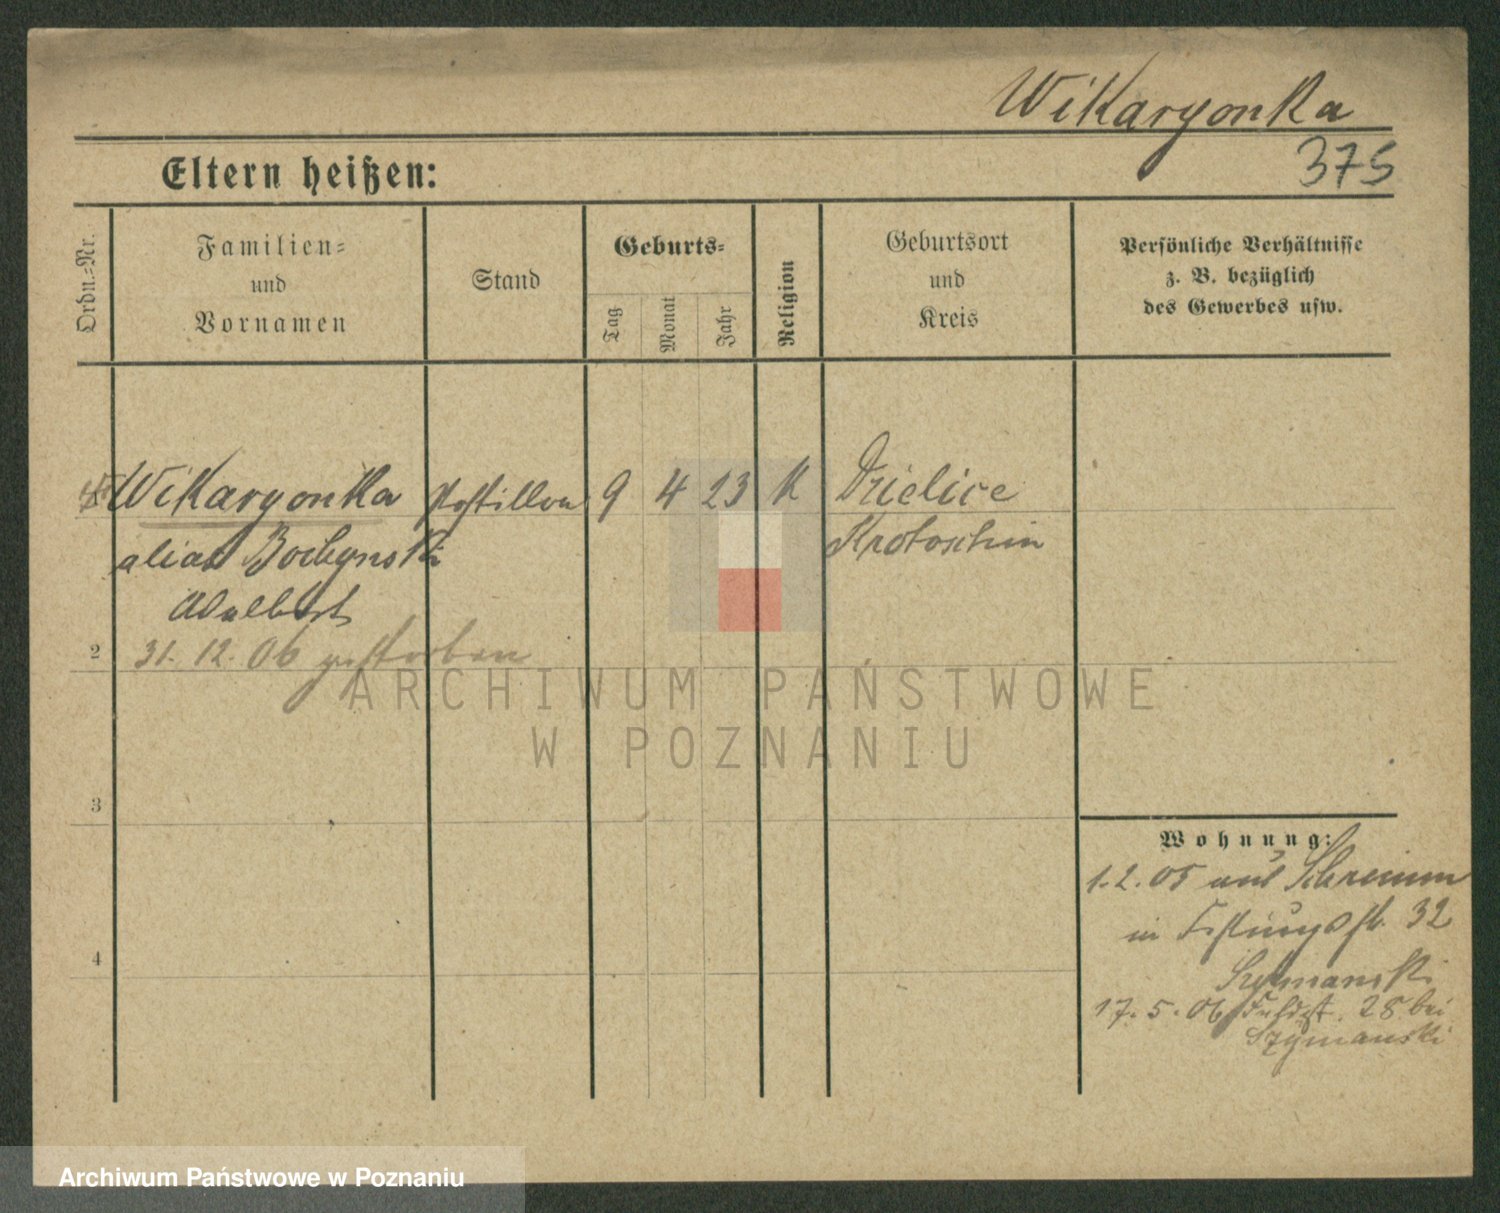 Wikaryonka
375
Eltern heißen:
Ordn.-Nr.
Familien-
und
Vornamen
Stand
Geburts-
Tag
Monat
Jahr
Religion
Geburtsort
und
Kreis
Persönliche Verhältnisse
z. B. bezüglich
des Gewerbes usw.
Wikaryonka Postillon 9 4 23 K Dzielice
alias Bochynski Krotoschin
Adalbert
31. 12. 06 gestorben
2
3
4
Wohnung:
1. 2. 05 aus Schrimm
in 32
Szymanski
17. 5. 06 28 bei
Szymanski
ARCHIWUM PAŃSTWOWE
W POZNANIU
Archiwum Państwowe w Poznaniu